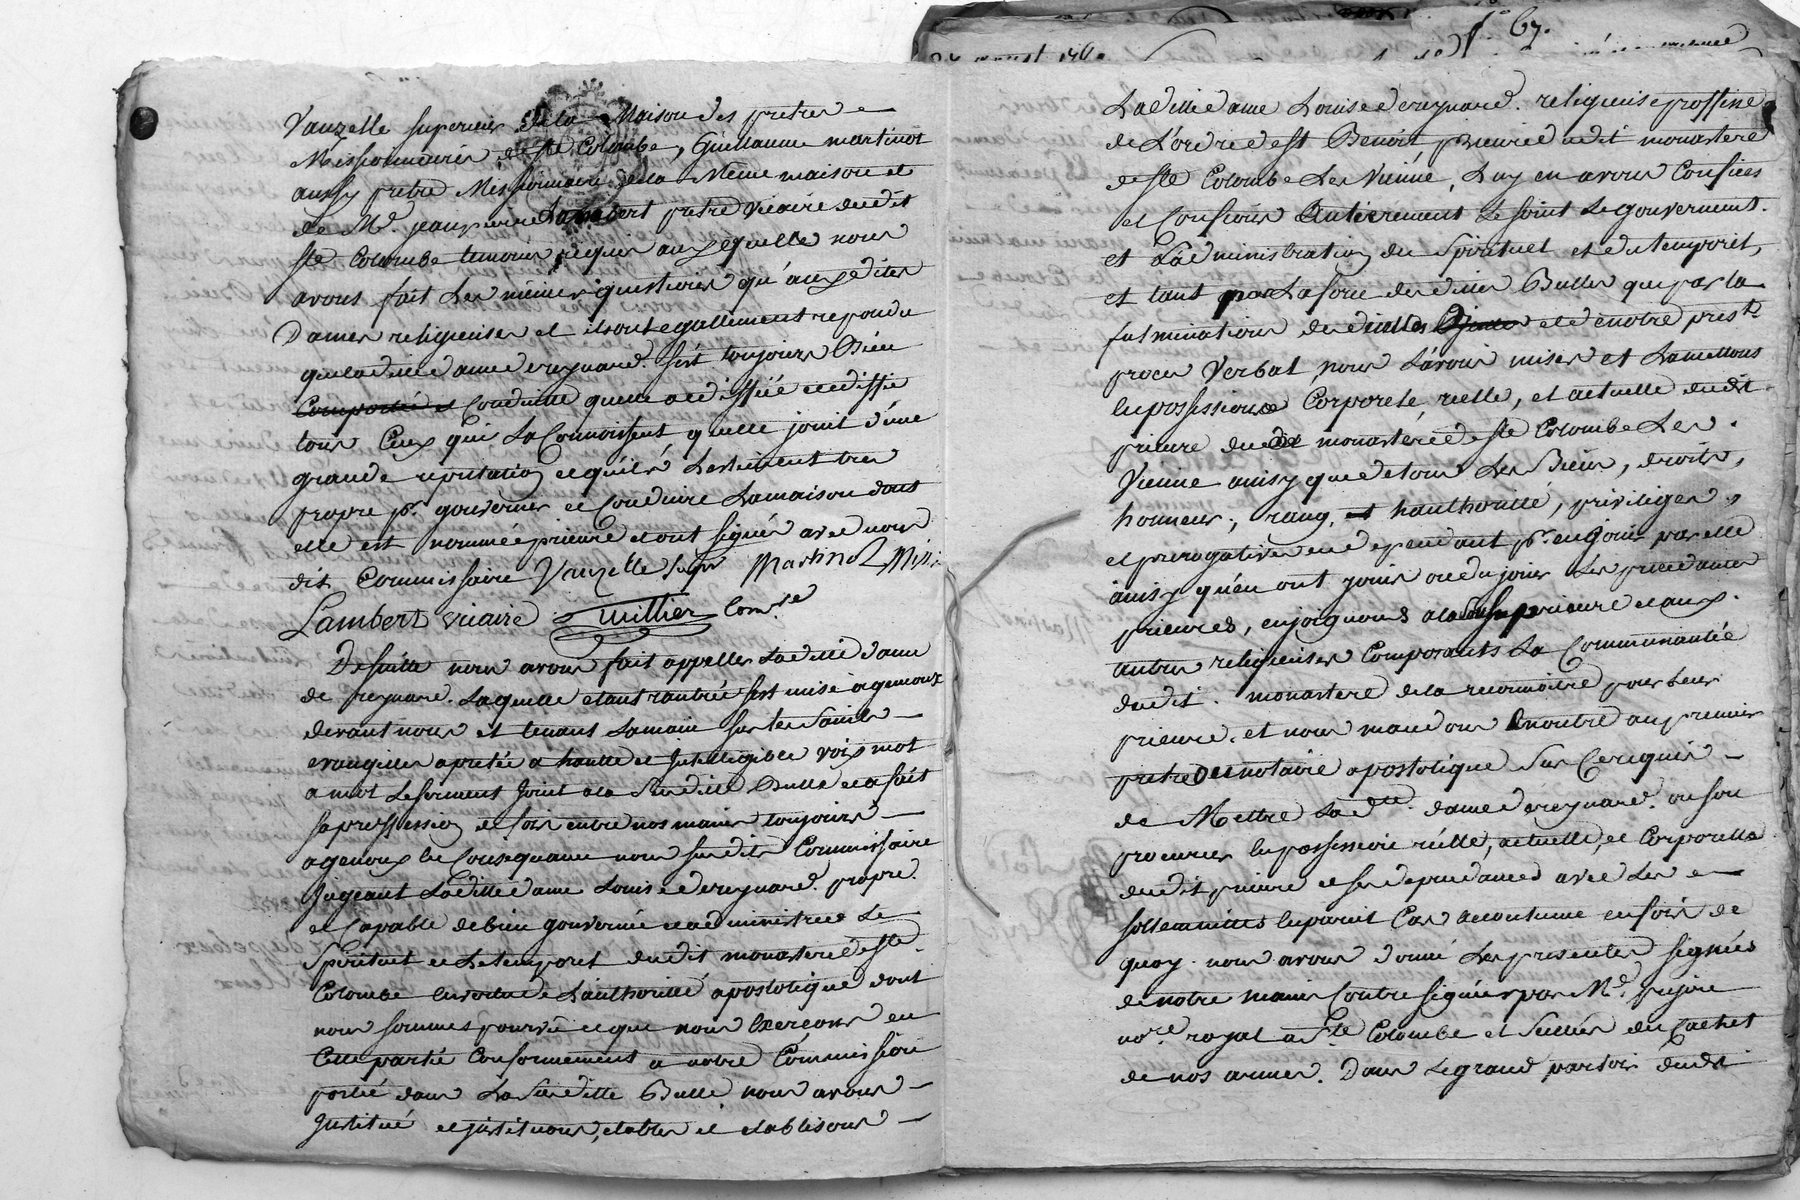 Vauzelle superieur de la Maison des pretres
Missionnaires de Ste Colombe, Guillaume martinot
aussy pretre Missionnaire de la Meme maison et
de Mr. jean pierre Lambert pretre Vicaire dudit
Ste Colombe temoins requis auxquelle nous
avons fait Les mêmes questions qu'auxdites
Dames religieuses et ils ont egallement repondu
que laditte dame dreynard. s'est toujours Bien
Comportée et Conduitte quelle a ediffié et ediffie
tous Ceux qui La Connoissent quelle jouit d'une
grande reputation et quils Lestiment tres
propre pr. gouverner et Conduire La maison dont
elle est nommée prieure et ont signés avec nous
dit Commissaire Vauzelle Supr Martinot Miss:
Lambert vicaire Tuillier Comre
De suitte nous avons fait appeller Laditte dame
de reynard. Laquelle etant rantrée s'est mise a genoux
devant nous et tenant La main sur les Saints
evangilles a pretée a haulte et Intelligible voix mot
a mot Le serment Joint a la Susditte Bulle et a fait
sa proffession de foi entre nos mains toujours
a genoux en Consequance nous susdit Commissaire
Jugeant Laditte dame Louise de reynard. propre.
et Capable de bien gouverner et administrer Le
Spirituel et Le temporel dudit monastere de Ste
Colombe en vertu de Lauthorité apostolique dont
nous sommes pourvu et que nous Exercons en
Cette partie Conformement a notre Commission
portée dans La Susditte Bulle nous avons
Justitué et justituons, etablis et etablisons
fo 67.
Laditte dame Louise de reynard. religieuse proffesse
de L'ordre de st Benoit prieure dudit monastere
de Ste Colombe Les Vienne, Luy en avons Confiées
et Confions Entierement Le soint Le gouvernement.
et L'administration du Spirituel et du temporel,
et tant par La force desdittes Bulles que par la
fulmination desdittes Bulles et de notre prest
proces Verbal nous L'avons mises et La mettons
en possession Corporele, réelle, et actuelle dudit
prieure dudit monastére de Ste Colombe Les
Vienne ainsy que de tous Les Biens, droits,
honneurs, rang, et hauthorité, privileges,
et prerogatives en dependant pr. en Jouir par elle
ainsy qu'en ont jouis ou du jouir Les precedantes
prieures, enjoignons a la Sousprieure et aux.
autres religieuses Composants La Communautée
dudit. monastere de la reconnoitre pour leur
prieure. et nous mandons En outre au premier
pretre ou notaire apostolique Sur Ce requis
de Mettre La dte. dame de reynard. ou son
procureur en possession réélle, actuelle, et Corporelle
dudit prieure et ses dependances avec Les
sollemnittés en pareil Cas accoutume en foi de
quoy. nous avons donné Les presentes signées
de notre main Contre signées par Mr.
nore. royal a Ste Colombe et Sellées du Cachet
de nos armes. Dans Le grand parloir dudit